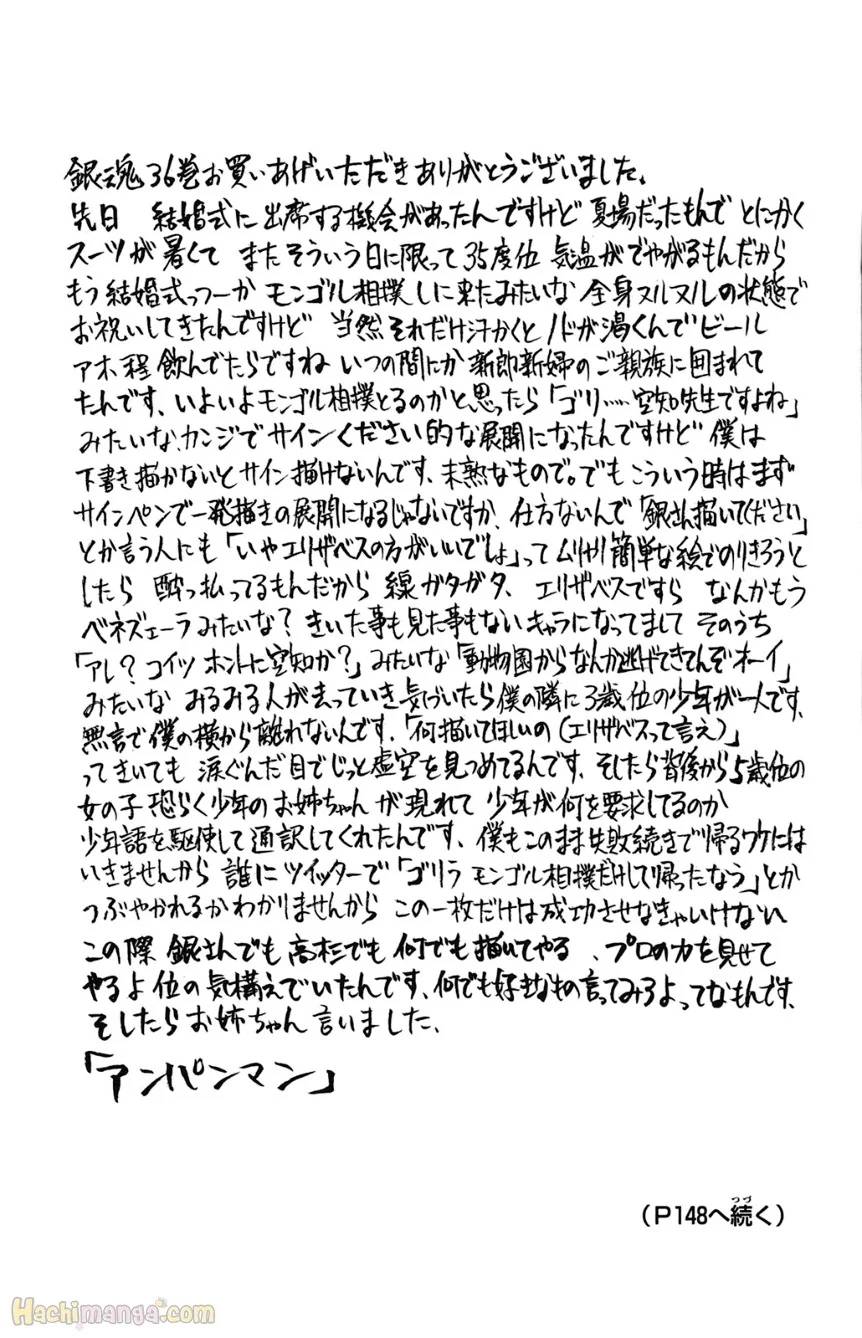 銀魂36巻お買いあげいただきありがとうございました。
先日 結婚式に出席する機会があったんですけど 夏場だったもんで とにかく
スーツが暑くて またそういう日に限って35度位 気温がでやがるもんだから
もう結婚式っつーか モンゴル相撲しに来たみたいな 全身ヌルヌルの状態で
お祝いしてきたんですけど 当然それだけ汗かくとノドが渇くんでビール
アホ程飲んでたらですね いつの間にか新郎新婦のご親族に囲まれて
たんです、いよいよモンゴル相撲とるのかと思ったら「ゴリ……空知先生ですよね」
みたいな、カンジでサインください的な展開になったんですけど 僕は
下書き描かないとサイン描けないんです、未熟なもので。でもこういう時はまず
サインペンで一発描きの展開になるじゃないですか、仕方ないんで「銀さん描いてください」
とか言う人にも「いやエリザベスの方がいいでしょ」ってムリヤリ簡単な絵でのりきろうと
したら 酔っ払ってるもんだから 線ガタガタ、エリザベスですら なんかもう
ベネズェーラみたいな?きいた事も見た事もないキャラになってまして そのうち
「アレ?コイツ ホントに空知か?」みたいな「動物園からなんか逃げてきてんぞオーイ」
みたいな みるみる人が去っていき気づいたら僕の隣に3歳位の少年が一人です、
無言で僕の横から離れないんです、「何描いてほしいの(エリザベスって言え)」
ってきいても 涙ぐんだ目でじっと虚空を見つめてるんです、そしたら背後から5歳位の
女の子 恐らく少年のお姉ちゃんが現れて 少年が何を要求してるのか
少年語を駆使して通訳してくれたんです、僕もこのまま失敗続きで帰るワケには
いきませんから 誰にツイッターで「ゴリラ モンゴル相撲だけして帰ったなう」とか
つぶやかれるかわかりませんから この一枚だけは成功させなきゃいけない
この際 銀さんでも高杉でも何でも描いてやる、プロの力を見せて
やるよ 位の気構えでいたんです、何でも好きなもの言ってみろよってなもんです、
そしたらお姉ちゃん言いました、
「アンパンマン」
(P148へ続く)
つづ
Hachimanga.com